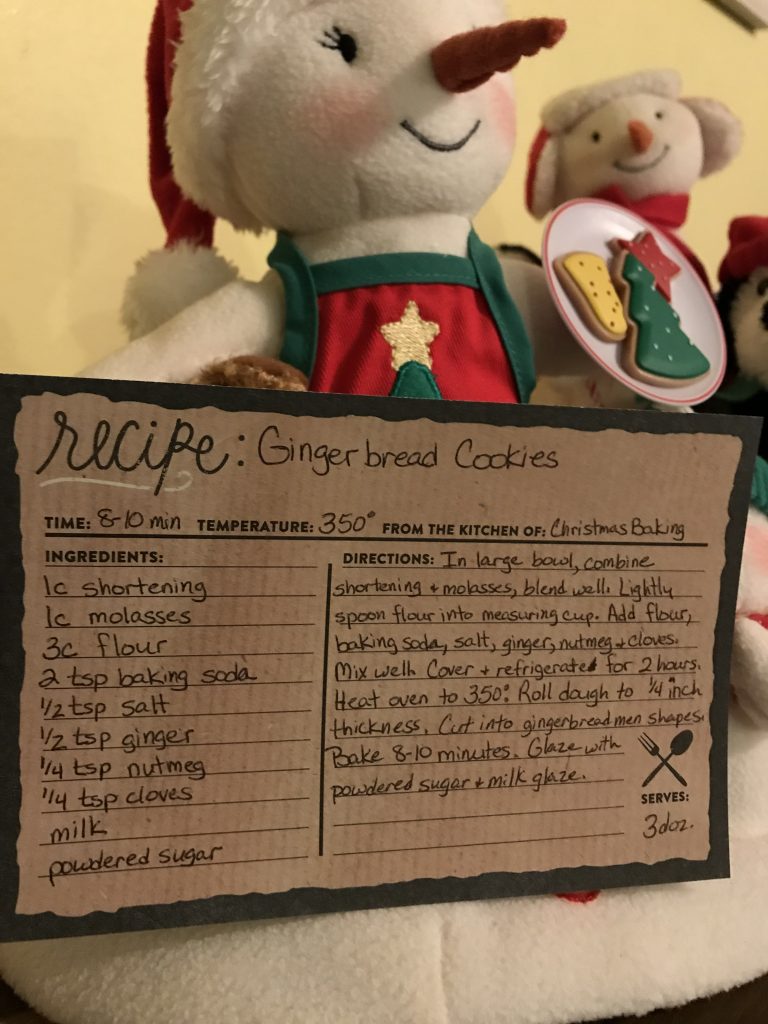 recipe: Gingerbread Cookies
TIME: 8-10 min TEMPERATURE: 350° FROM THE KITCHEN OF: Christmas Baking
INGREDIENTS:
1c shortening
1c molasses
3c flour
2 tsp baking soda
1/2 tsp salt
1/2 tsp ginger
1/4 tsp nutmeg
1/4 tsp cloves
milk
powdered sugar
DIRECTIONS: In large bowl, combine
shortening + molasses, blend well. Lightly
spoon flour into measuring cup. Add flour,
baking soda, salt, ginger, nutmeg + cloves.
Mix well. Cover + refrigerate for 2 hours.
Heat oven to 350°. Roll dough to 1/4 inch
thickness. Cut into gingerbread men shapes.
Bake 8-10 minutes. Glaze with
powdered sugar + milk glaze.
SERVES:
3 doz.